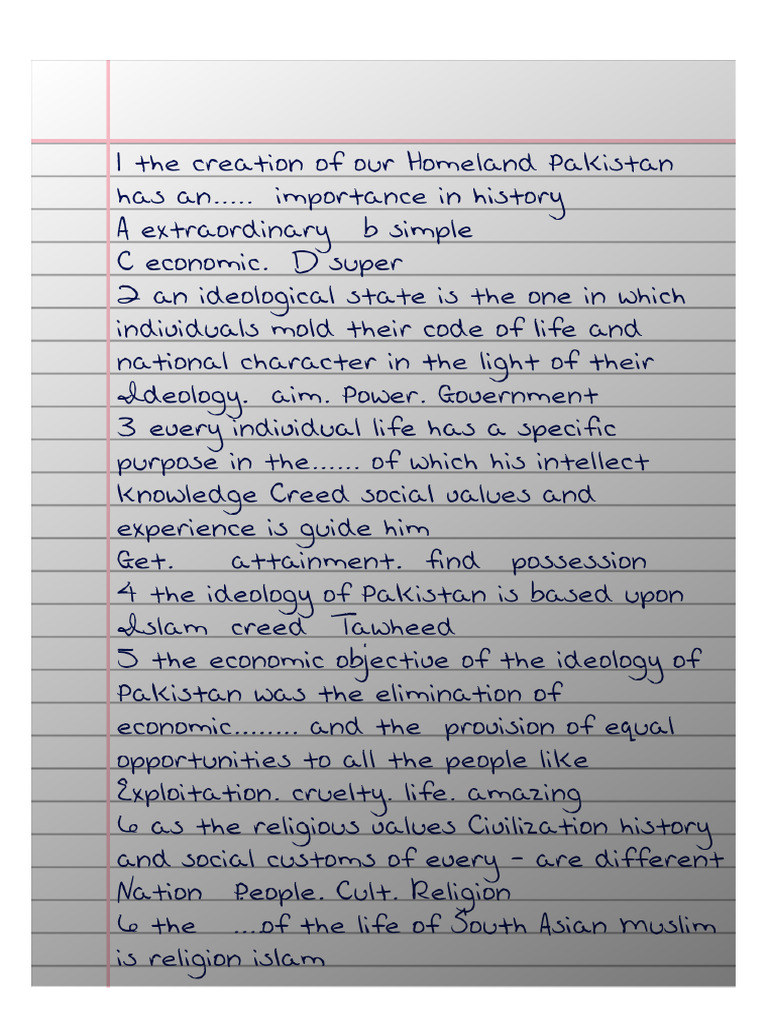 1 the creation of our Homeland Pakistan
has an..... importance in history
A extraordinary b simple
C economic. D super
2 an ideological state is the one in which
individuals mold their code of life and
national character in the light of their
Ideology. aim. Power. Government
3 every individual life has a specific
purpose in the...... of which his intellect
knowledge Creed social values and
experience is guide him
Get. attainment. find possession
4 the ideology of Pakistan is based upon
Islam creed Tawheed
5 the economic objective of the ideology of
Pakistan was the elimination of
economic........ and the provision of equal
opportunities to all the people like
Exploitation. cruelty. life. amazing
6 as the religious values Civilization history
and social customs of every - are different
Nation People. Cult. Religion
6 the ...of the life of South Asian Muslim
is religion islam